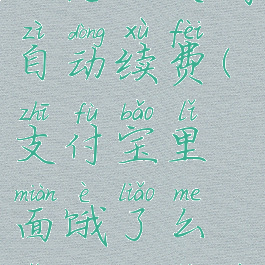 zì dòng xù fèi
自动续费(
zhī fù bǎo lǐ
支付宝里
miàn è liǎo me
面饿了么